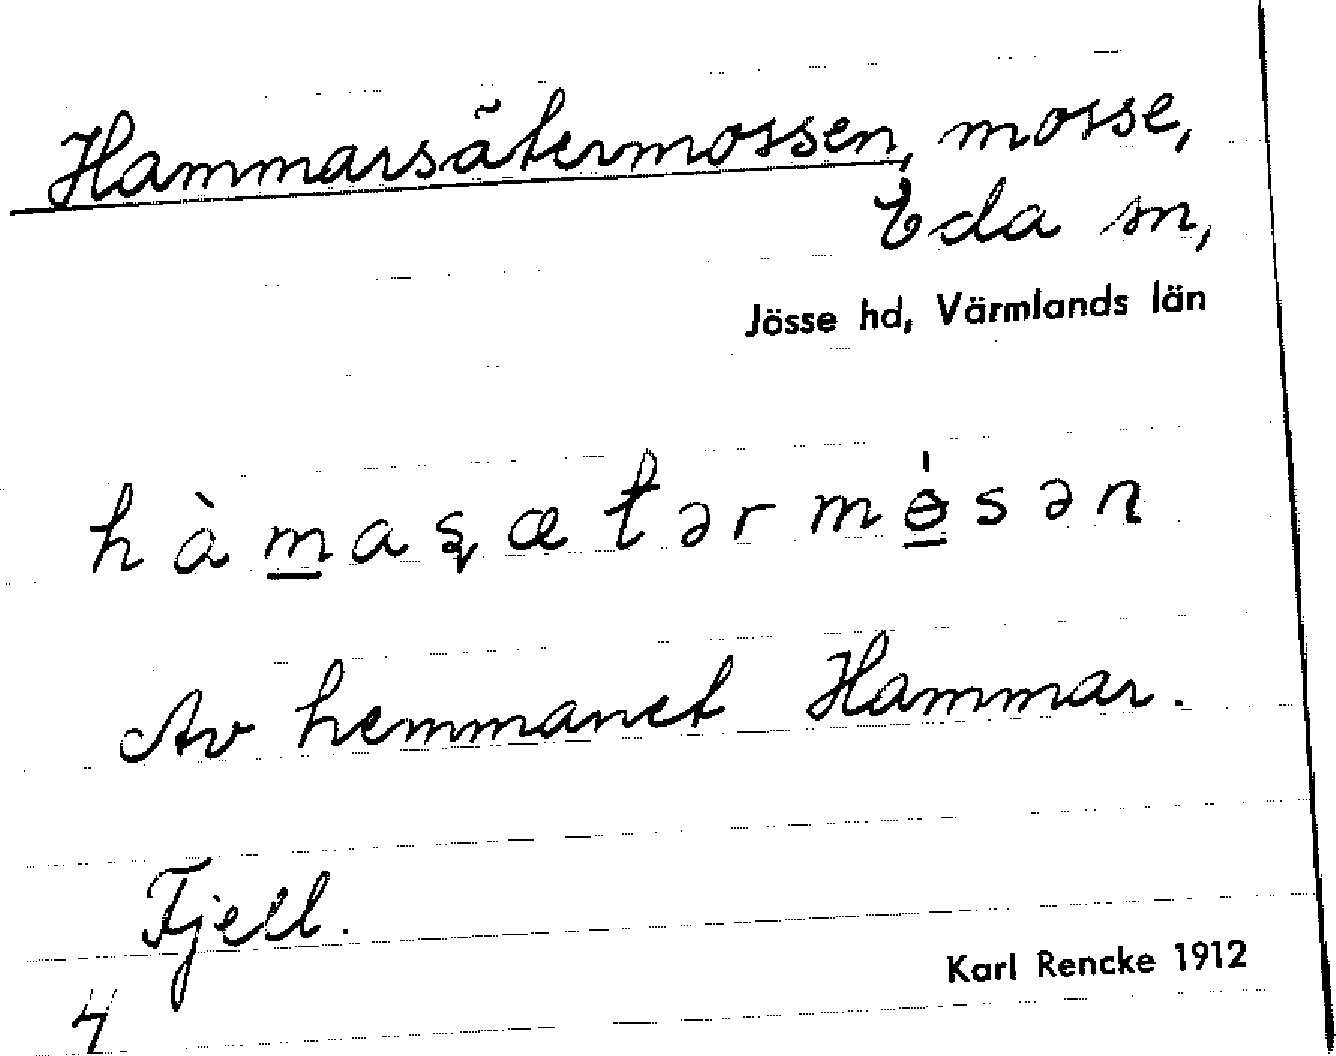 Hammarsätermossen, mosse,
Eda sn,
Jösse hd, Värmlands län
hàmaʂætərmɵ̀sən
Av hemmanet Hammar.
Fjell.
Karl Rencke 1912
4